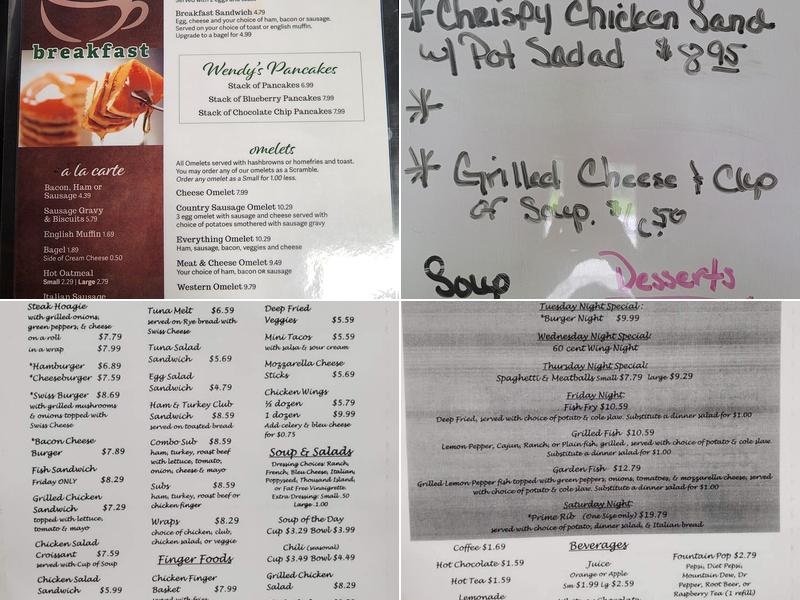 Served with 2 eggs and toast
Breakfast Sandwich 4.79
Egg, cheese and your choice of ham, bacon or sausage.
Served on your choice of toast or english muffin.
Upgrade to a bagel for 4.99
breakfast
Wendy's Pancakes
Stack of Pancakes 6.99
Stack of Blueberry Pancakes 7.99
Stack of Chocolate Chip Pancakes 7.99
a la carte
Bacon, Ham or
Sausage 4.39
Sausage Gravy
& Biscuits 5.79
English Muffin 1.69
Bagel 1.89
Side of Cream Cheese 0.50
Hot Oatmeal
Small 2.29 | Large 2.79
Italian Sausage
omelets
All Omelets served with hashbrowns or homefries and toast.
You may order any of our omelets as a Scramble.
Order any omelet as a Small for 1.00 less.
Cheese Omelet 7.99
Country Sausage Omelet 10.29
3 egg omelet with sausage and cheese served with
choice of potatoes smothered with sausage gravy
Everything Omelet 10.29
Ham, sausage, bacon, veggies and cheese
Meat & Cheese Omelet 9.49
Your choice of ham, bacon OR sausage
Western Omelet 9.79
* Chrispy Chicken Sand
w/ Pot Sadad $8.95
*
* Grilled Cheese & Cup
of Soup. $6.50
Soup
Desserts
Steak Hoagie
with grilled onions,
green peppers, & cheese
on a roll $7.79
in a wrap $7.99
*Hamburger $6.89
*Cheeseburger $7.59
*Swiss Burger $8.69
with grilled mushrooms
& onions topped with
Swiss Cheese
*Bacon Cheese
Burger $7.89
Fish Sandwich
Friday ONLY $8.29
Grilled Chicken
Sandwich $7.29
topped with lettuce,
tomato & mayo
Chicken Salad
Croissant $7.59
served with Cup of Soup
Chicken Salad
Sandwich $5.99
Tuna Melt $6.59
served on Rye bread with
Swiss Cheese
Tuna Salad
Sandwich $5.69
Egg Salad
Sandwich $4.79
Ham & Turkey Club
Sandwich $8.59
served on toasted bread
Combo Sub $8.59
ham, turkey, roast beef
with lettuce, tomato,
onion, cheese & mayo
Subs $8.59
ham, turkey, roast beef or
chicken finger
Wraps $8.29
choice of chicken, club,
chicken salad, or veggie
Finger Foods
Chicken Finger
Basket $7.99
served with fries
Deep Fried
Veggies $5.59
Mini Tacos $5.59
with salsa & sour cream
Mozzarella Cheese
Sticks $5.69
Chicken Wings
½ dozen $5.79
1 dozen $9.99
Add celery & bleu cheese
for $0.75
Soup & Salads
Dressing Choices: Ranch,
French, Bleu Cheese, Italian,
Poppyseed, Thousand Island,
or Fat Free Vinaigrette.
Extra Dressing: Small .50
Large 1.00
Soup of the Day
Cup $3.29 Bowl $3.99
Chili (seasonal)
Cup $3.49 Bowl $4.49
Grilled Chicken
Salad $8.29
Tuesday Night Special:
*Burger Night $9.99
Wednesday Night Special:
60 cent Wing Night
Thursday Night Special:
Spaghetti & Meatballs Small $7.79 large $9.29
Friday Night:
Fish Fry $10.59
Deep Fried, served with choice of potato & cole slaw. Substitute a dinner salad for $1.00
Grilled Fish $10.59
Lemon Pepper, Cajun, Ranch, or Plain fish, grilled, served with choice of potato & cole slaw.
Substitute a dinner salad for $1.00
Garden Fish $12.79
Grilled Lemon Pepper fish topped with green peppers, onions, tomatoes, & mozzarella cheese, served
with choice of potato & cole slaw. Substitute a dinner salad for $1.00
Saturday Night:
*Prime Rib (One Size only) $19.79
served with choice of potato, dinner salad, & Italian bread
Beverages
Coffee $1.69
Hot Chocolate $1.59
Hot Tea $1.59
Lemonade
Juice
Orange or Apple
Sm $1.99 Lg $2.59
Milk or Chocolate
Fountain Pop $2.79
Pepsi, Diet Pepsi,
Mountain Dew, Dr
Pepper, Root Beer, or
Raspberry Tea (1 refill)